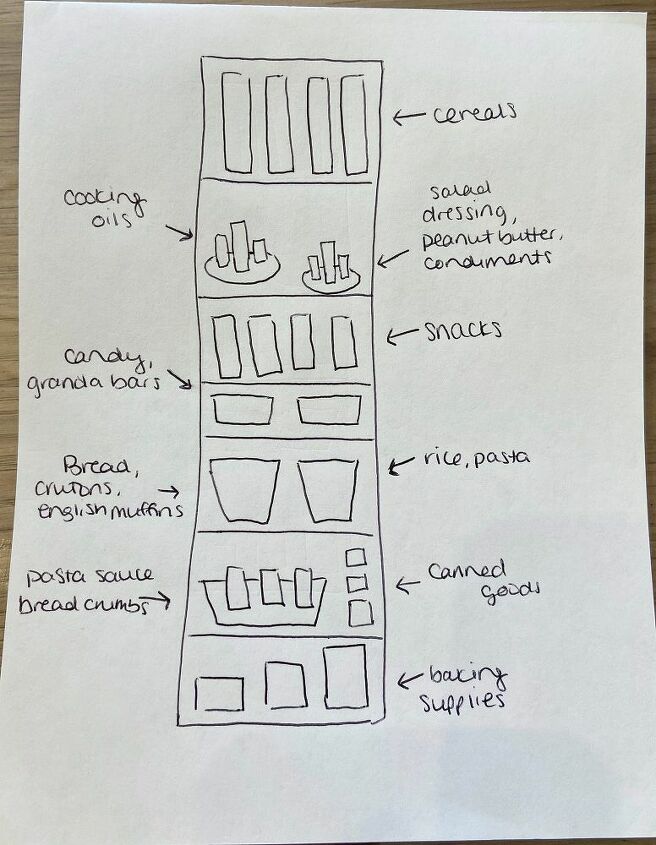 cereals
cooking
oils
salad
dressing,
peanut butter,
condiments
snacks
candy,
granola bars
Bread,
crutons,
english muffins
rice, pasta
pasta sauce
bread crumbs
Canned
goods
baking
supplies